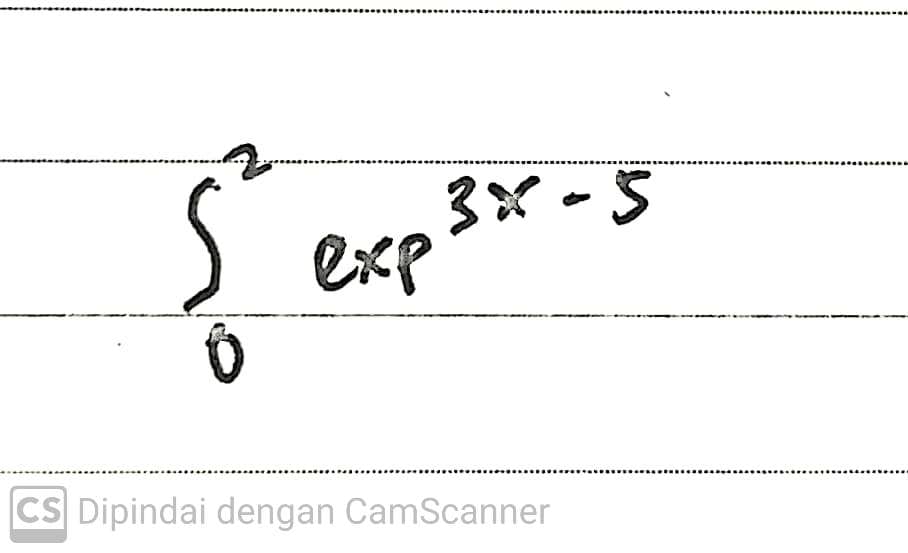 ∫₀² exp^{3x-5}
CS Dipindai dengan CamScanner